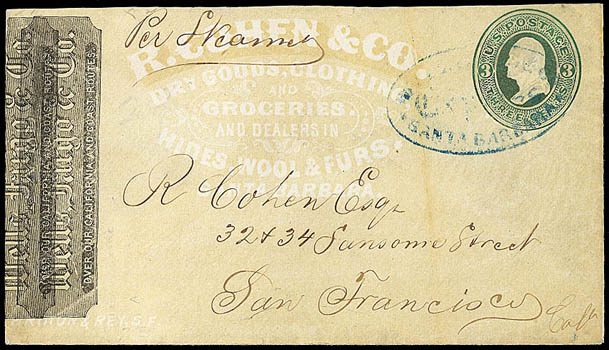 Per Steamer
R. COHEN & CO.
DRY GOODS, CLOTHING
AND
GROCERIES.
AND DEALERS IN
HIDES, WOOL & FURS.
SANTA BARBARA.
U.S. POSTAGE
3 3
THREE CENTS
SANTA BARBARA
Wells, Fargo & Co.
OVER OUR CALIFORNIA AND COAST ROUTES
Wells, Fargo & Co.
OVER OUR CALIFORNIA AND COAST ROUTES
R Cohen Esqr
32 & 34 Sansome Street
San Francisco
Cala
& REY, S.F.